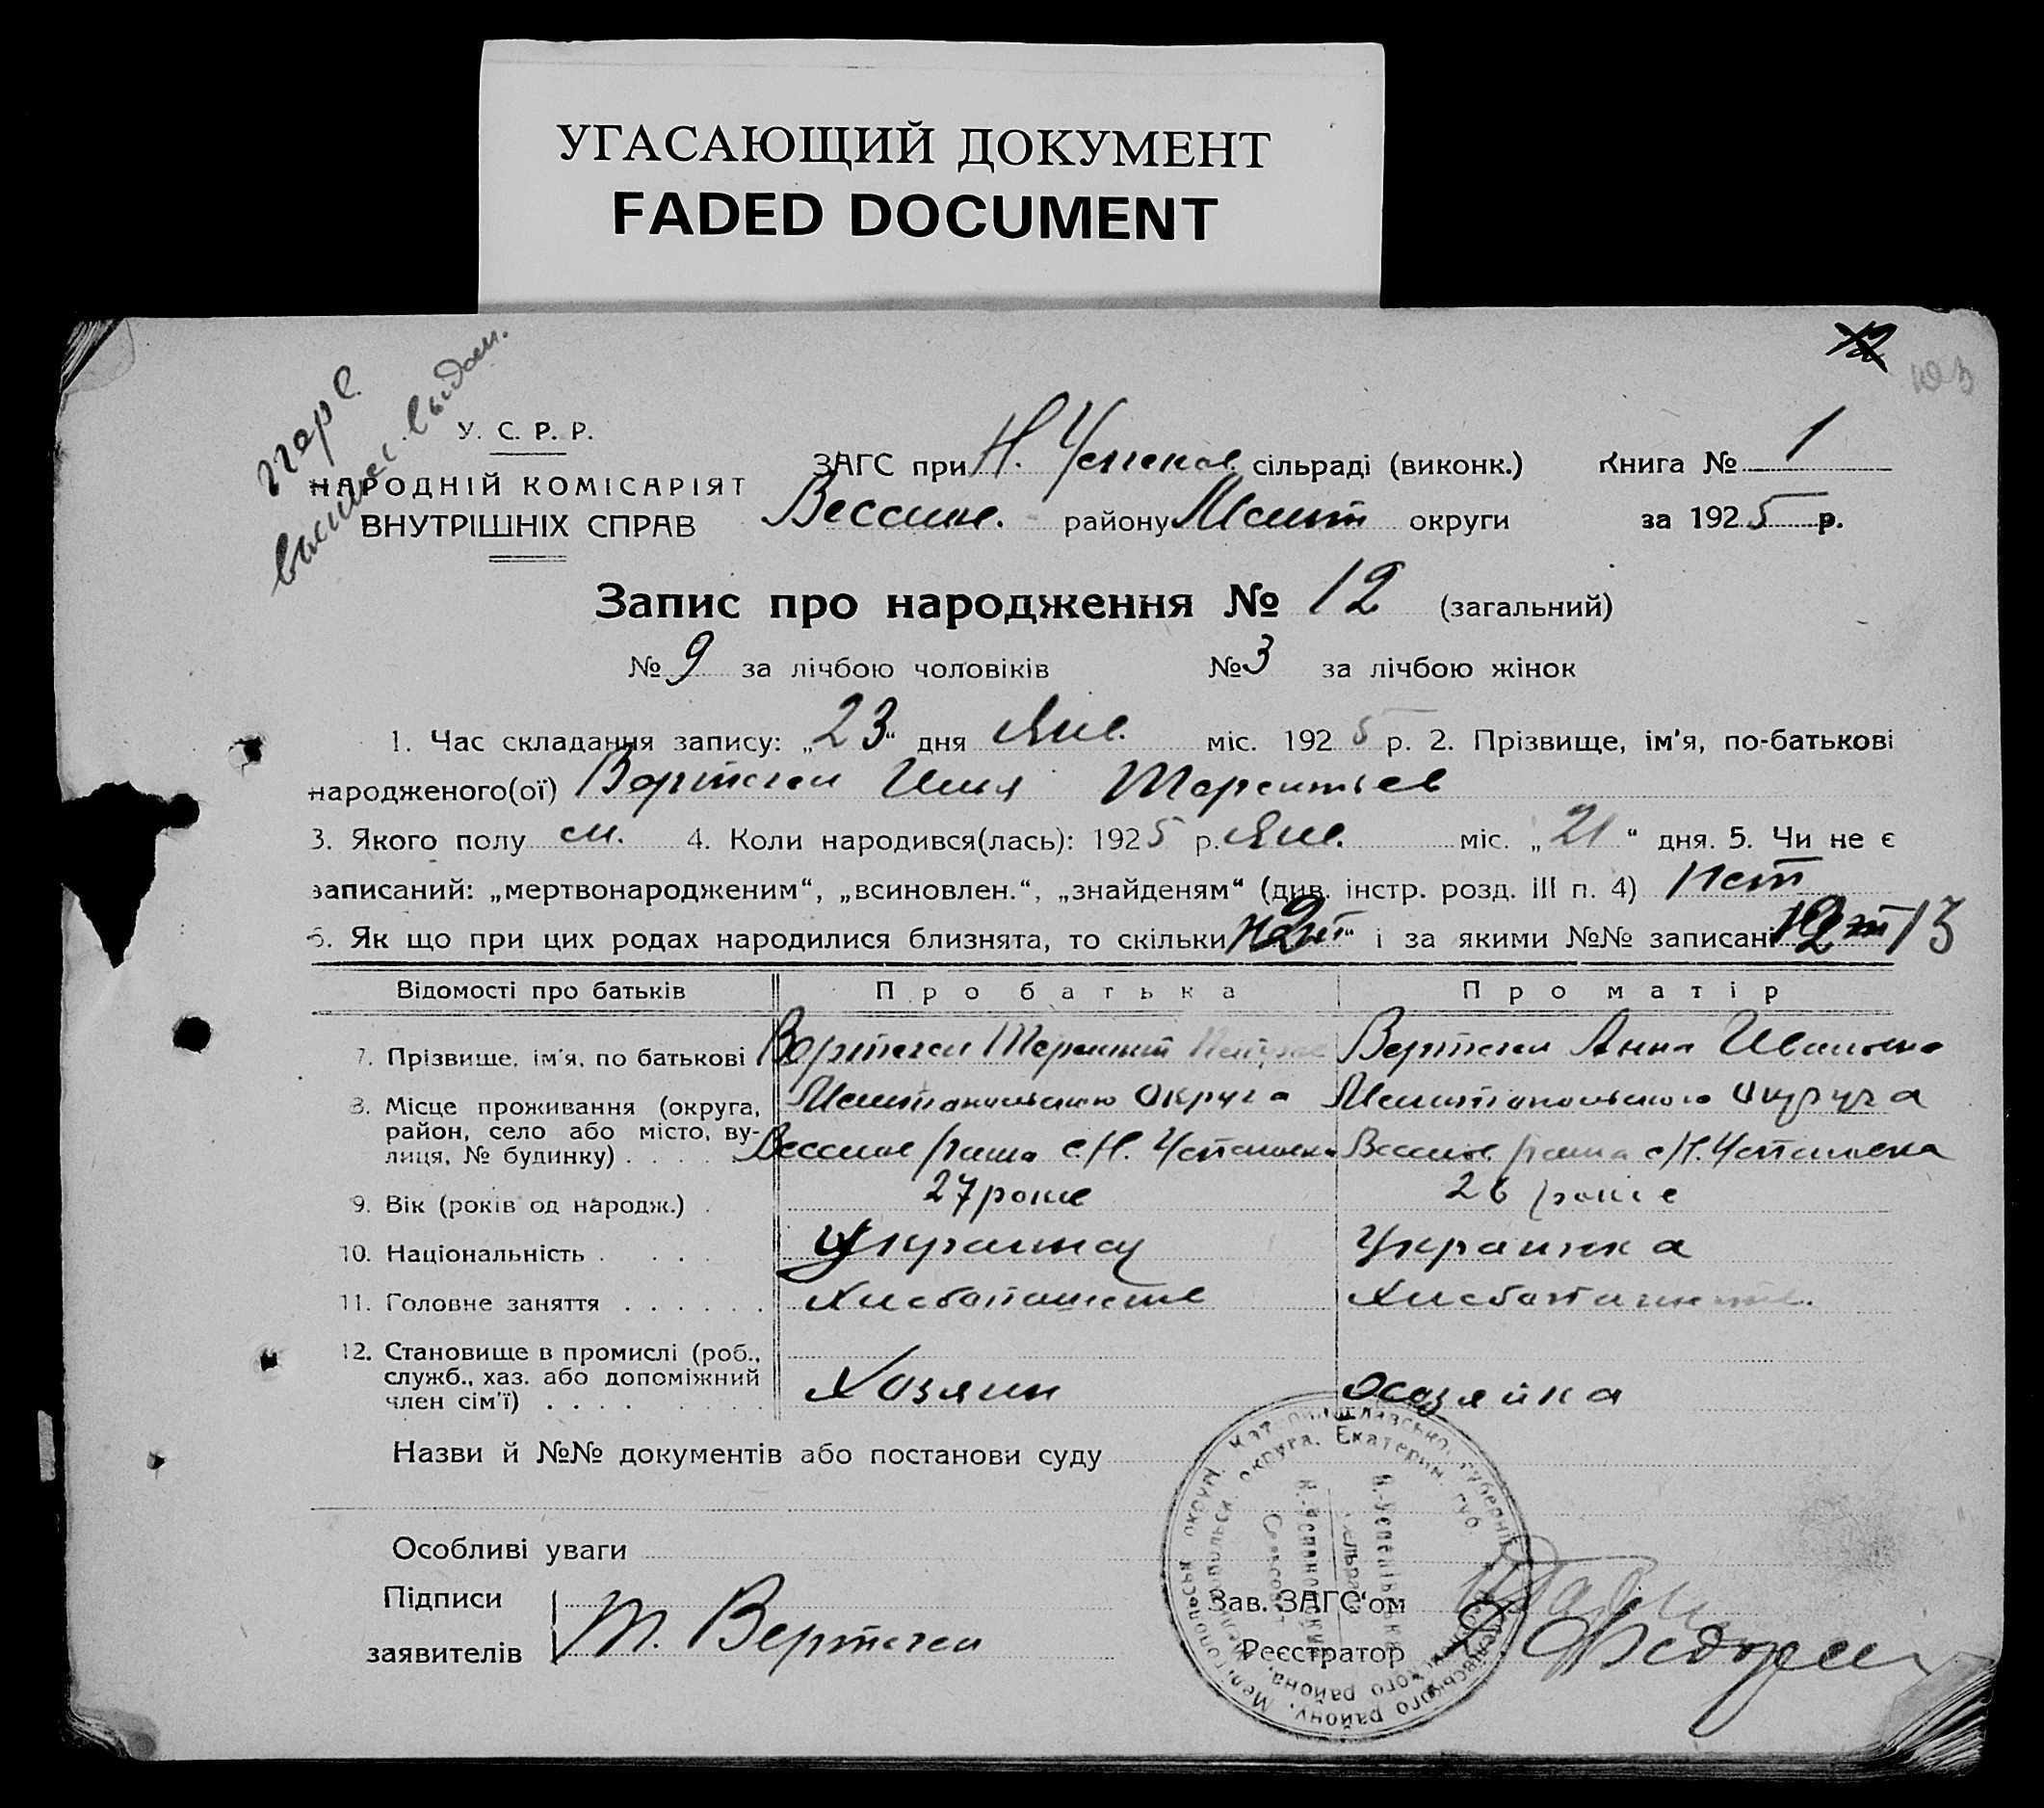 УГАСАЮЩИЙ ДОКУМЕНТ
FADED DOCUMENT
У. С. Р. Р.
НАРОДНІЙ КОМІСАРІЯТ
ВНУТРІШНІХ СПРАВ
ЗАГС при Н. Успенск. сільраді (виконк.) Книга № 1
Веселов. району Меліт округи за 1925 р.
Запис про народження № 12 (загальний)
№ 9 за лічбою чоловіків № 3 за лічбою жінок
1. Час складання запису: „23“ дня Янв. міс. 1925 р. 2. Прізвище, ім'я, по-батькові
народженого(ої) Вертегел Илия Терентьев
3. Якого полу м. 4. Коли народився(лась): 1925 р. Янв. міс. „21“ дня. 5. Чи не є
записаний: „мертвонародженим“, „всиновлен.“, „знайденям“ (див. інстр. розд. III п. 4) Нет
6. Як що при цих родах народилися близнята, то скільки 2 і за якими №№ записані 12 13
Відомості про батьків Про батька Про матір
7. Прізвище, ім'я, по батькові Вертегел Терентий Вертегел Анна Ивановна
8. Місце проживання (округа, Мелитопольского Округа Мелитопольского Округа
район, село або місто, ву-
лиця, № будинку) . . . . Веселов района с Н. Успеновка Веселов. района с Н. Успеновка
9. Вік (років од народж.) . 27 років 26 років
10. Національність . . . . Украинец Украинка
11. Головне заняття . . . . . . Хлебопашество Хлебопашество.
12. Становище в промислі (роб.,
служб., хаз. або допоміжний
член сім'ї) . . . . . . . . Хозяин Хозяйка
Назви й №№ документів або постанови суду
Особливі уваги
Підписи
заявителів Т. Вертегел
Зав. ЗАГС'ом
Реєстратор